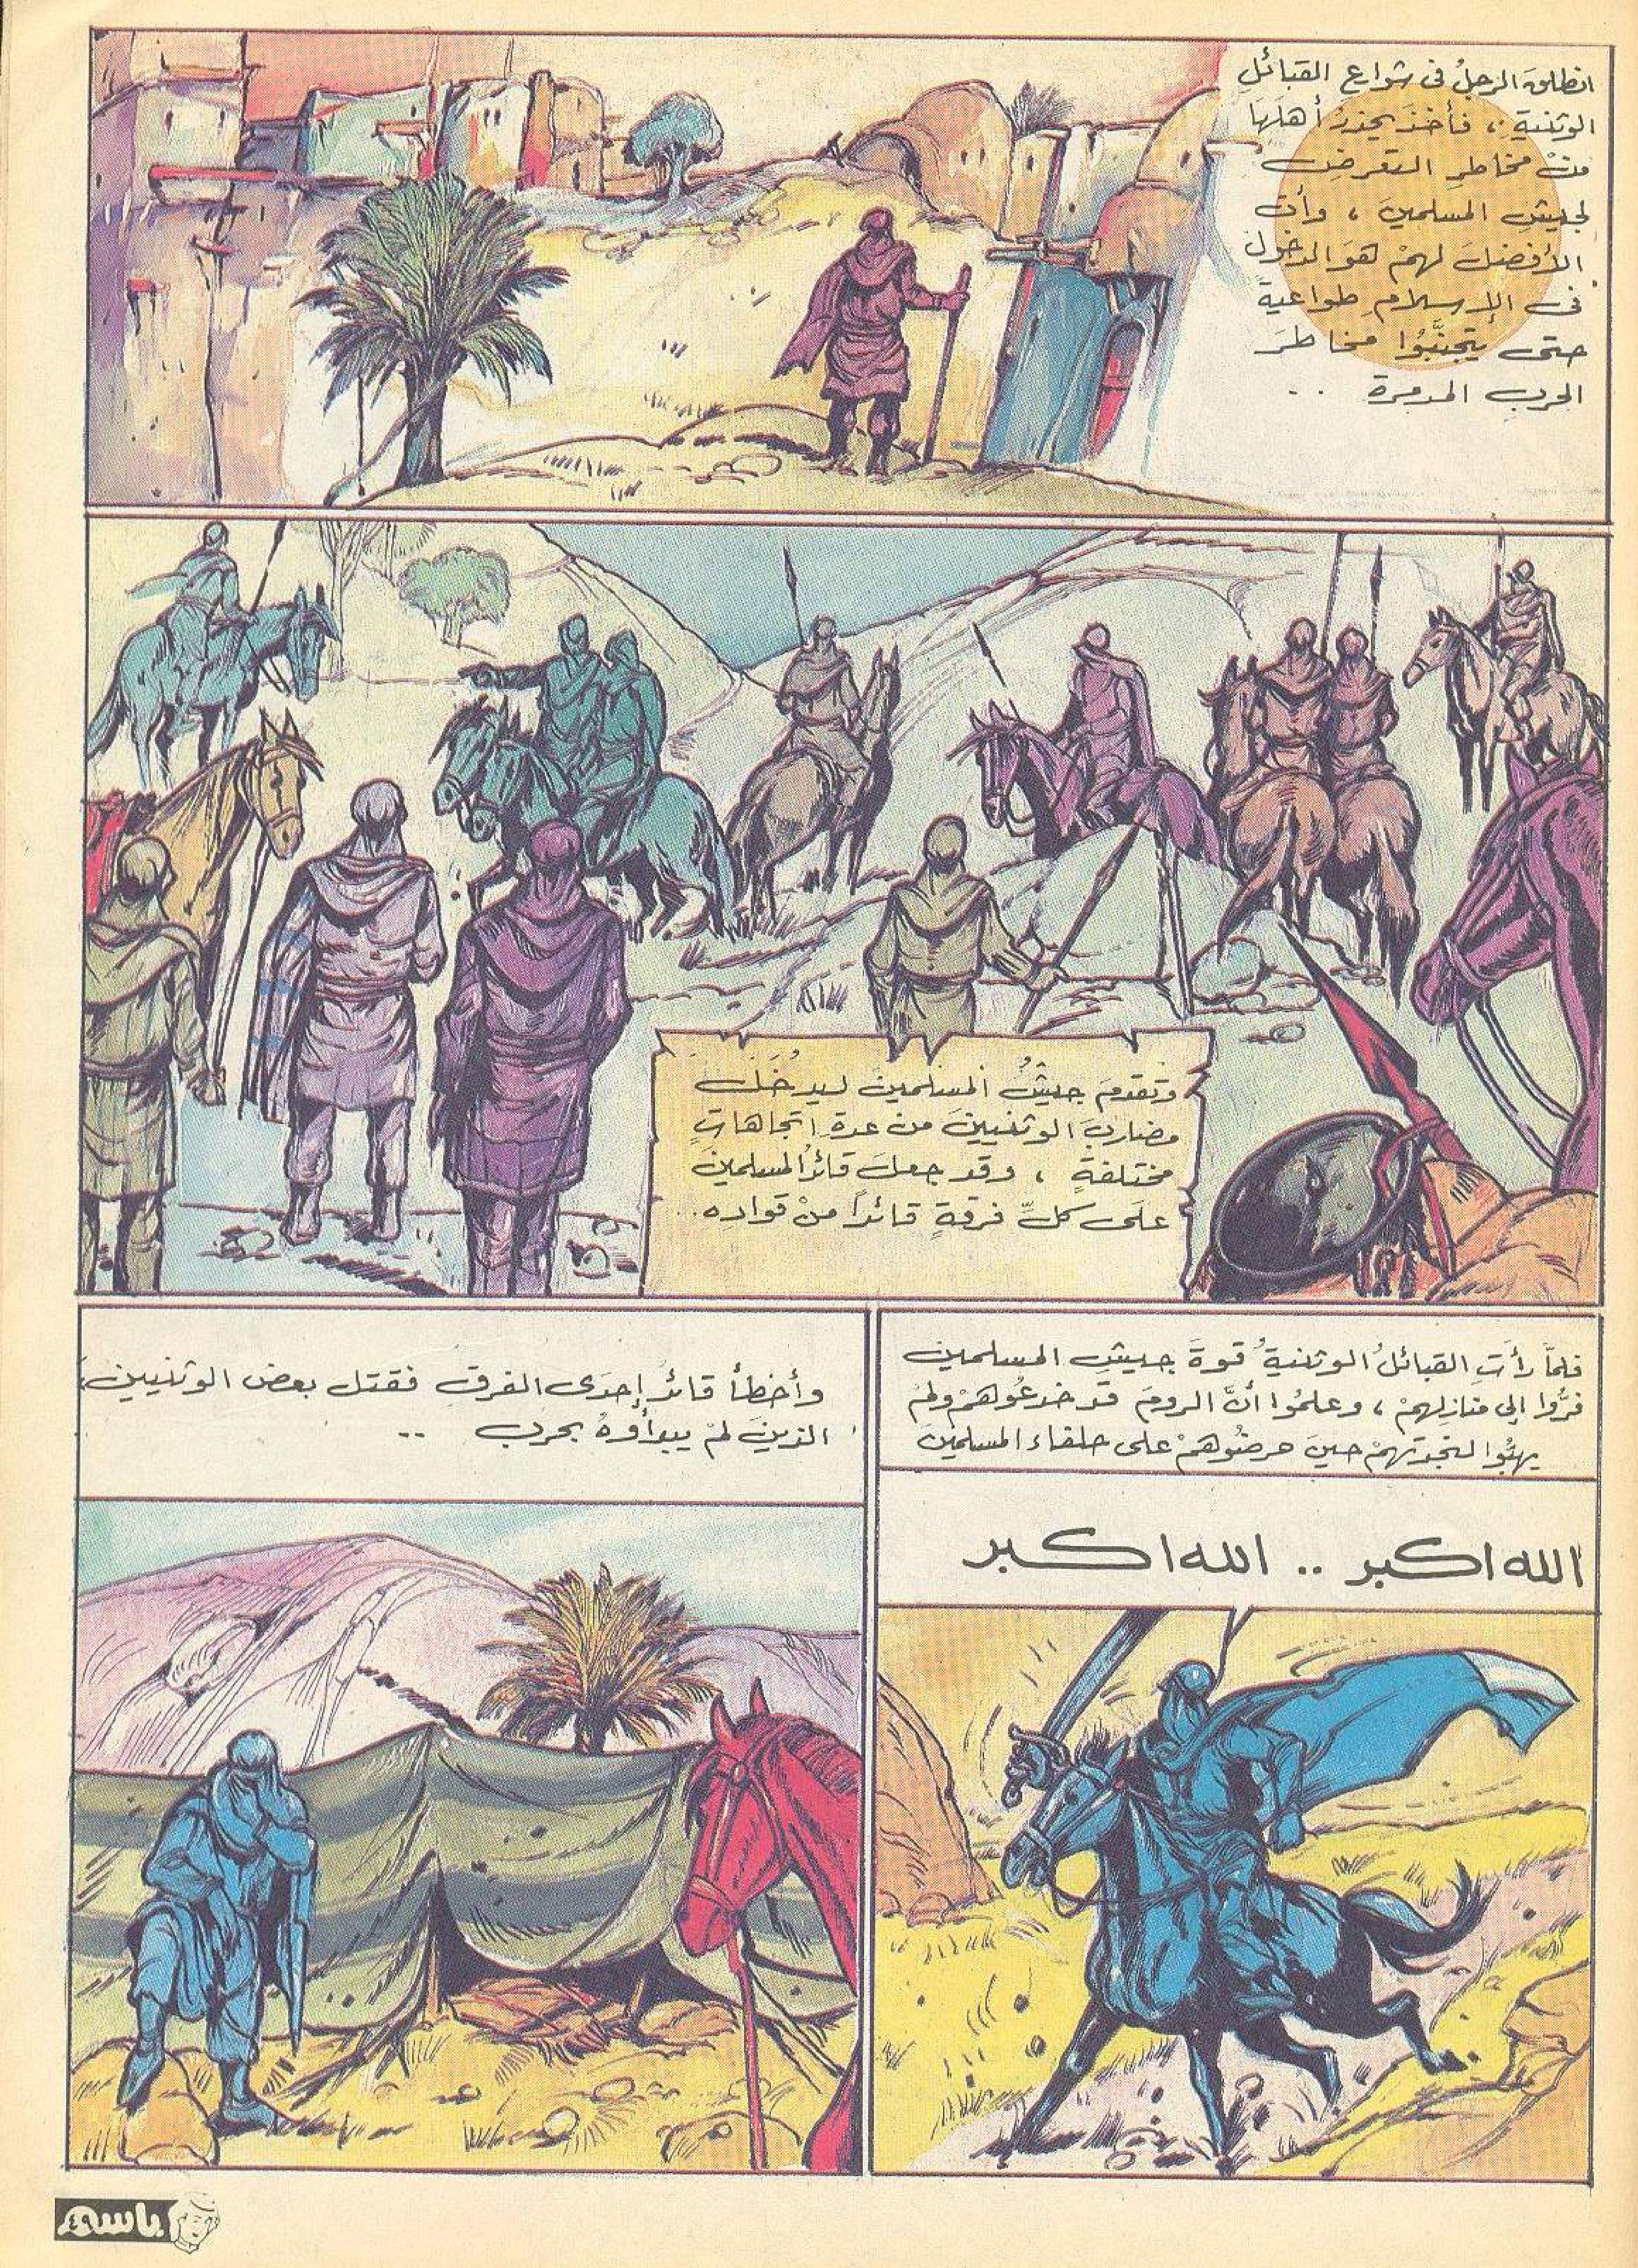 انطلقَ الرجلُ فى شوارع القبائلِ
الوثنيةِ ، فأخذَ يحذرُ أهلَهَا
منْ مخاطرِ التعرضِ
لجيشِ المسلمينَ ، وأن
الأفضلَ لهمْ هوَ الدخولُ
فى الإسلامِ طواعيةً
حتى يتجنَّبُوا مخاطرَ
الحربِ المدمرة ..
وتقدمَ جيشُ المسلمين ليدخُلَ
مضاربَ الوثنيينَ من عدةِ اتجاهاتٍ
مختلفةٍ ، وقد جعلَ قائدُ المسلمينَ
علَى كلِّ فرقةٍ قائداً منْ قوادِه..
فلمَّا رأتِ القبائلُ الوثنيةُ قوةَ جيشِ المسلمينَ
فرُّوا إلى منازِلِهمْ ، وعلمُوا أنَّ الرومَ قد خدعُوهمْ ولمْ
يهبُّوا لنجدتِهمْ حينَ حرضُوهمْ على حلفاءِ المسلمين
الله اكبر .. الله اكبر
وأخطأ قائدُ إحدَى الفرقِ فقتل بعضَ الوثنيينَ
الذينَ لمْ يبدأوهُ بحربٍ ..
باسم
٤٩